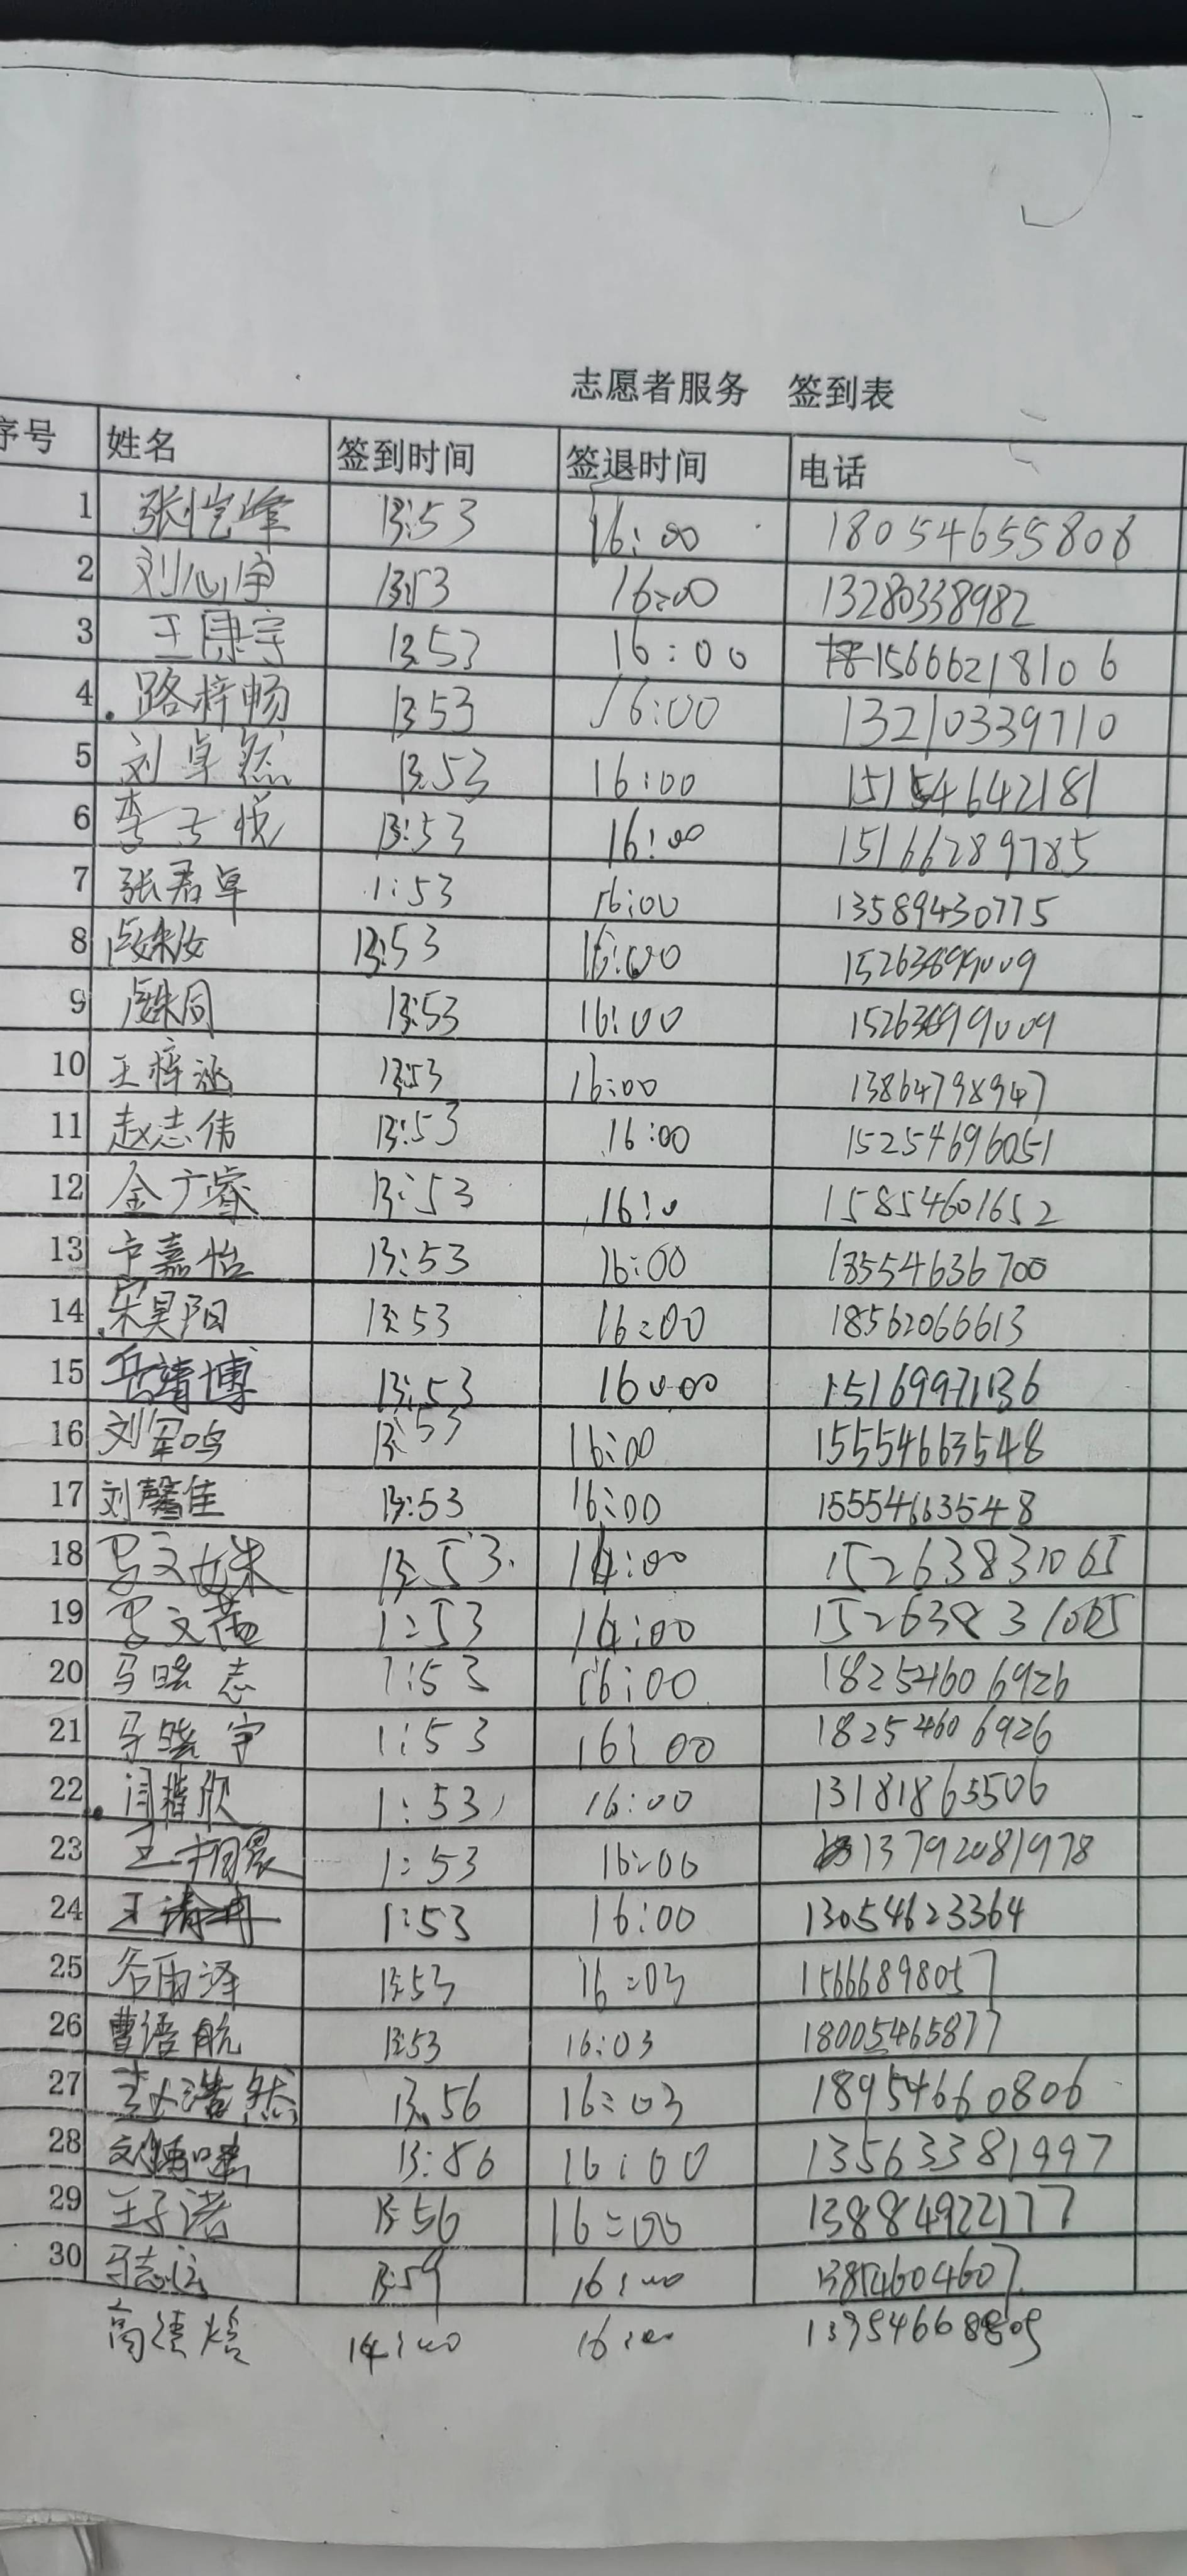 志愿者服务 签到表
序号 姓名 签到时间 签退时间 电话
1 张恺峰 13:53 16:00 18054655808
2 刘心净 13:53 16:00 13280338982
3 王康宇 13:53 16:00 15666218106
4 路梓畅 13:53 16:00 13210339710
5 刘卓然 13:53 16:00 15154642181
6 李子悦 13:53 16:00 15166289785
7 张君卓 1:53 16:00 13589430775
8 13:53 16:00 15263899009
9 13:53 16:00 15263899009
10 王梓涵 13:53 16:00 13864798947
11 赵志伟 13:53 16:00 15254696051
12 金广睿 13:53 16:0 15854601652
13 嘉怡 13:53 16:00 18554636700
14 宋昊阳 13:53 16:00 18562066613
15 岳靖博 13:53 16:00 15169971136
16 刘军鸣 13:53 16:00 15554663548
17 刘馨佳 13:53 16:00 15554663548
18 13:53 :00 15263831065
19 1:53 :00 15263831065
20 马晓志 1:53 16:00 18254606926
21 马晓宇 1:53 16:00 18254606926
22 闫楷欣 1:53 16:00 13181865506
23 王 1:53 16:00 13792081978
24 王 1:53 16:00 13054623364
25 谷雨泽 13:53 16:03 15666898057
26 曹语航 13:53 16:03 18005465877
27 浩然 13:56 16:03 18954660806
28 13:56 16:00 13563381997
29 王子诺 13:56 16:00 13884922177
30 马志远 13:59 16:00 13854604607
高 14:00 16:00